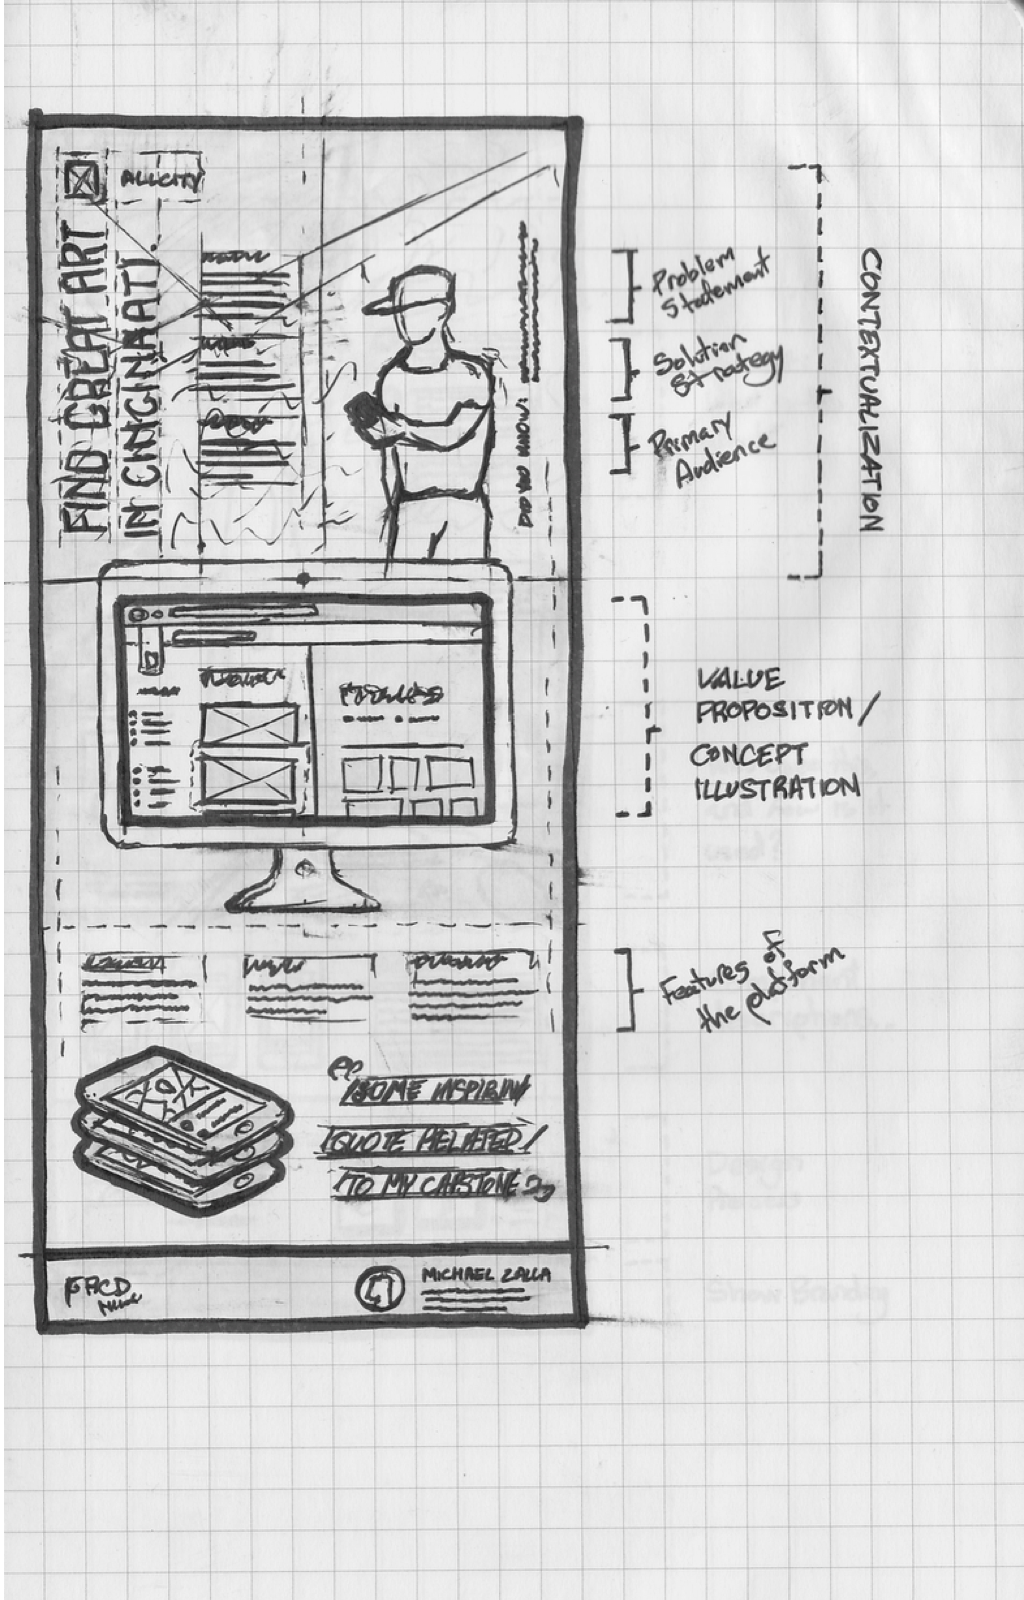 ALLCITY
FIND GREAT ART
IN CINCINNATI.
DID YOU KNOW:
Problem
Statement
Solution
Strategy
Primary
Audience
CONTEXTUALIZATION
VALUE
PROPOSITION /
CONCEPT
ILLUSTRATION
Features of
the platform
SOME INSPIRIN
QUOTE RELATED
TO MY CAPSTONE
MICHAEL ZALLA